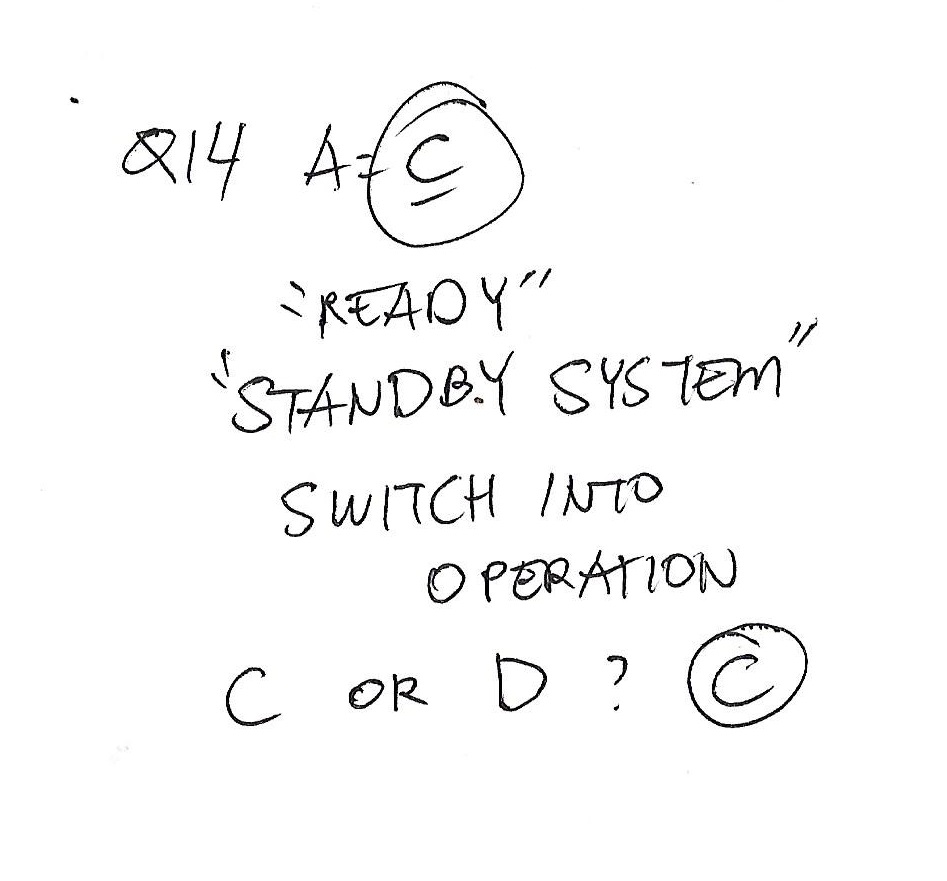 Q14 A= C
"READY"
"STANDBY SYSTEM"
SWITCH INTO
OPERATION
C OR D ? C